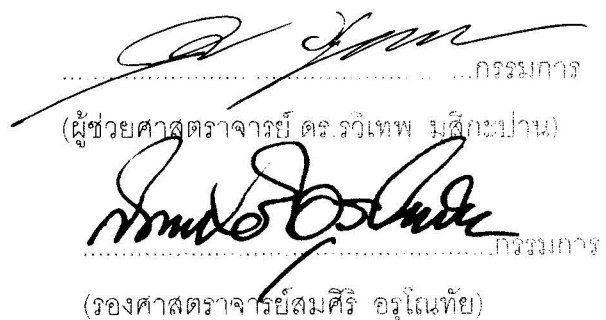 กรรมการ
(ผู้ช่วยศาสตราจารย์ ดร.รวิเทพ มุสิกะปาน)
กรรมการ
(รองศาสตราจารย์สมศิริ อรุโณทัย)